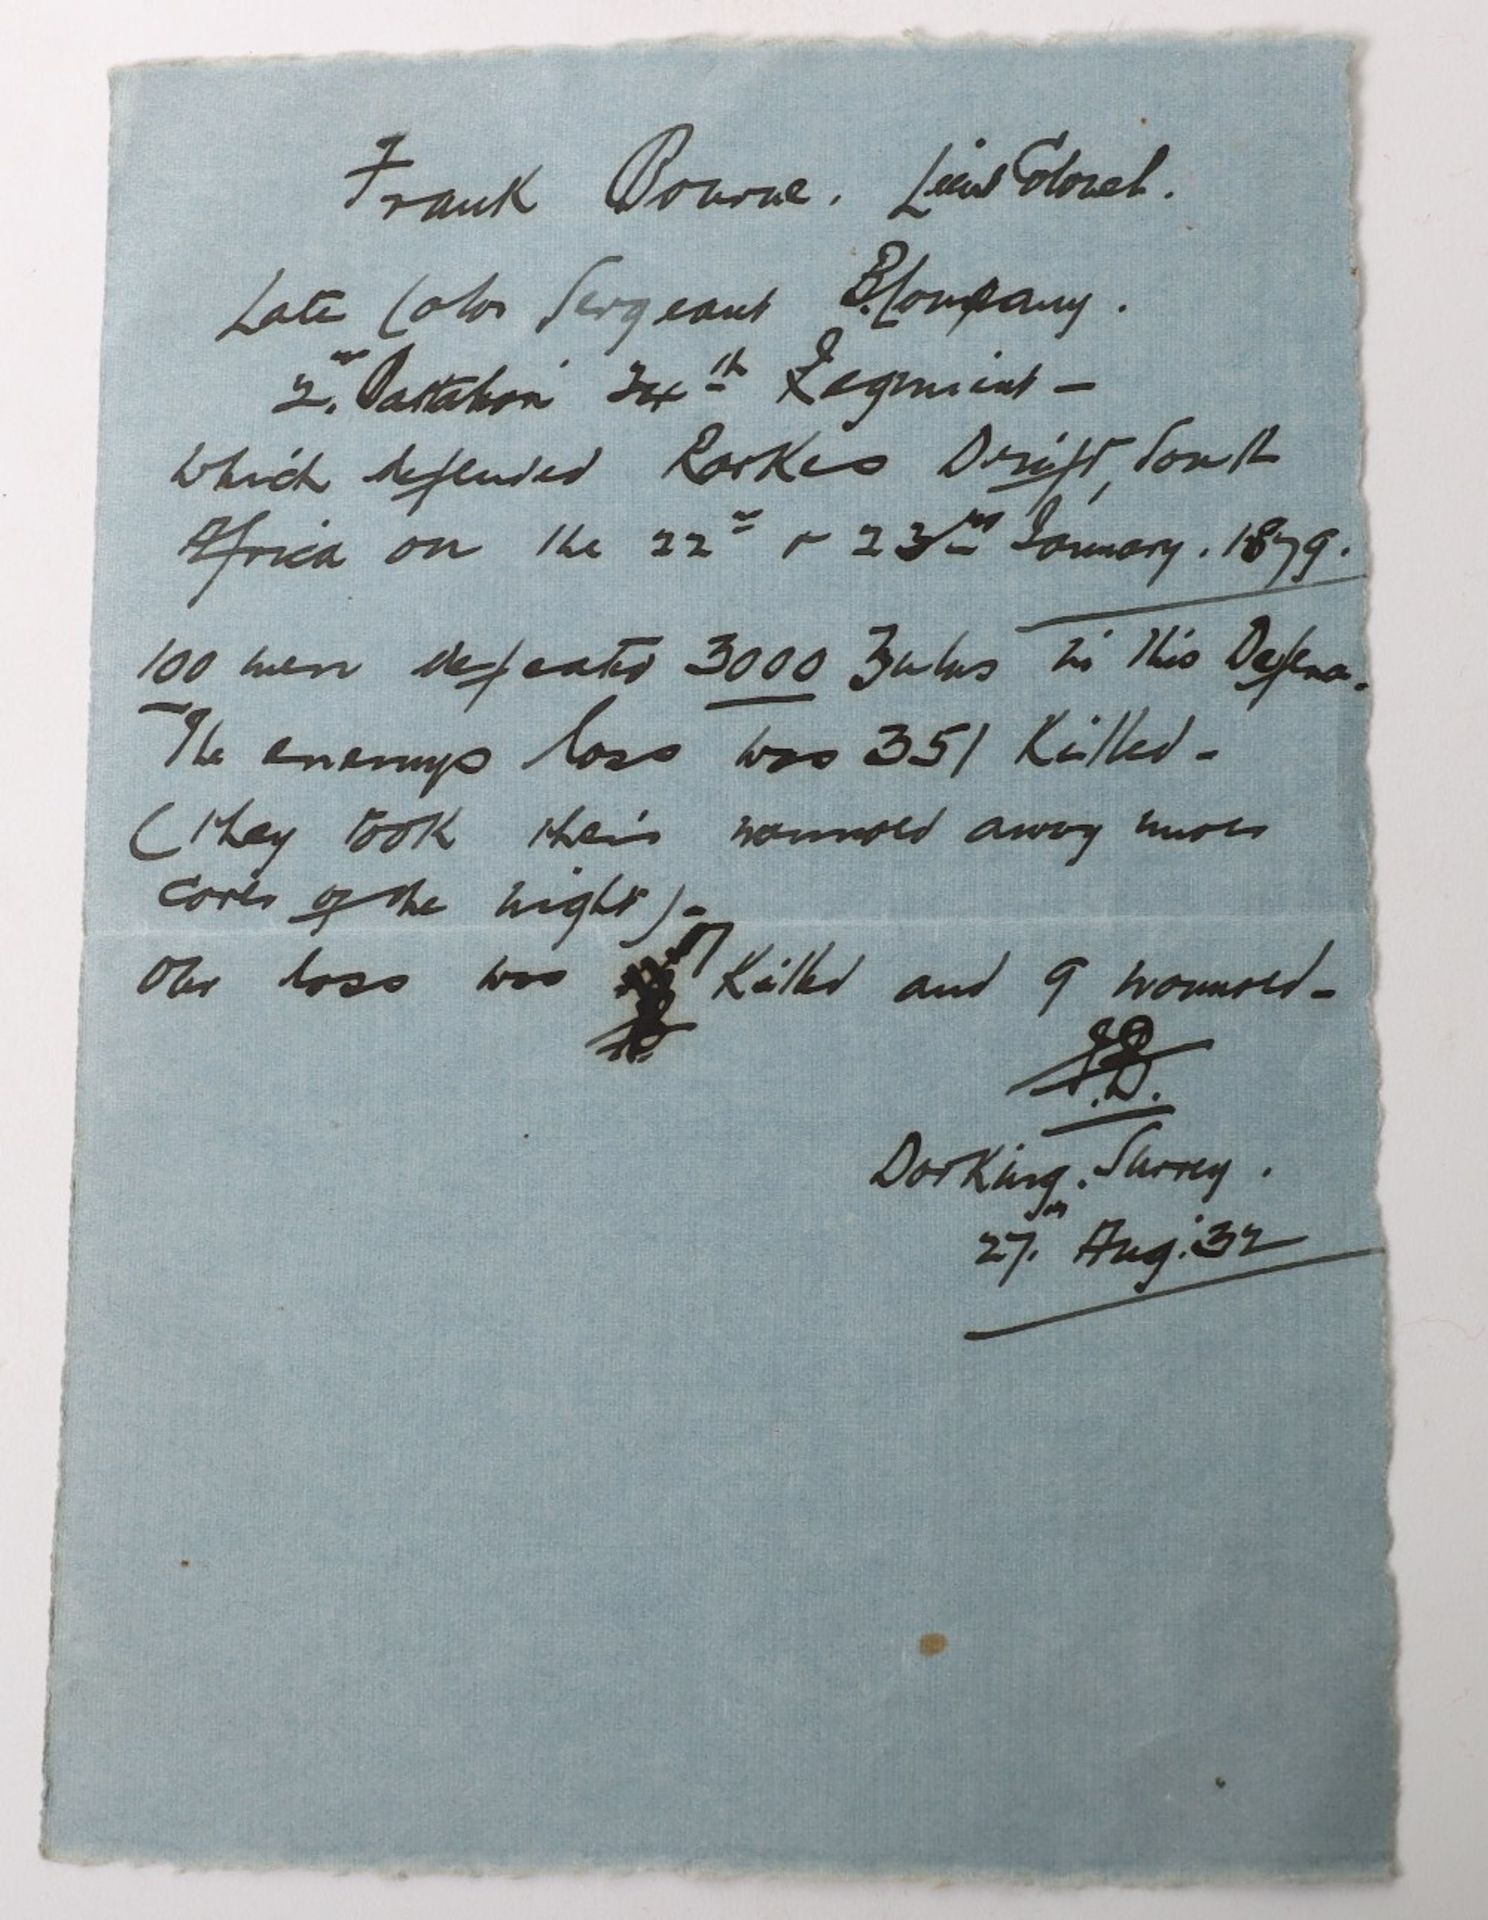 Frank Bourne. Lieut Colonel.
Late Color Sergeant B. Company.
2nd. Battalion 24th Regiment –
which defended Rorkes Drift, South
Africa on the 22nd & 23rd January. 1879.
100 men defeated 3000 Zulus in this Defence.
The enemys loss was 351 Killed –
(They took their wounded away under
cover of the night) –
Our loss was 17 Killed and 9 wounded –
Dorking. Surrey.
27th. Aug: 32